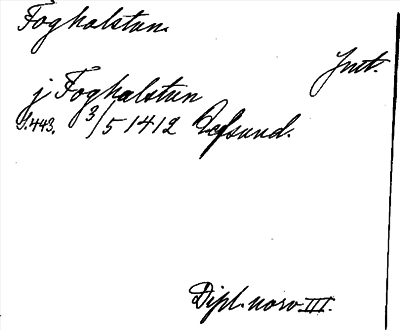 Fogkalstun.
Jmt.
j Fogkalstun
S. 443. 3/5 1412 Refsund.
Dipl. norv III.